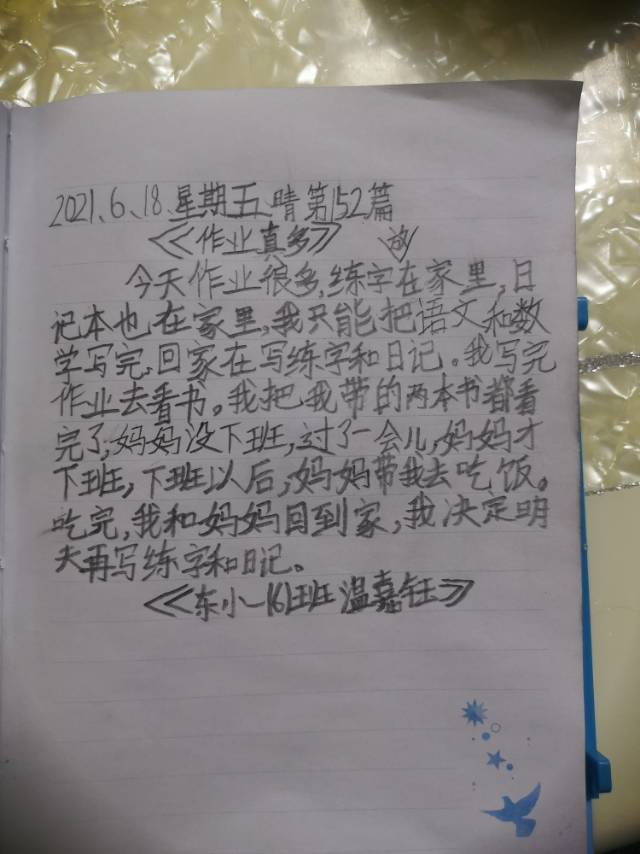 2021、6、18、星期五、晴第152篇
《作业真多》
今天作业很多,练字在家里,日
记本也在家里,我只能把语文和数
学写完,回家在写练字和日记。我写完
作业去看书。我把我带的两本书都看
完了,妈妈没下班,过了一会儿,妈妈才
下班,下班以后,妈妈带我去吃饭。
吃完,我和妈妈回到家,我决定明
天再写练字和日记。
《东小一(6)班温嘉钰》